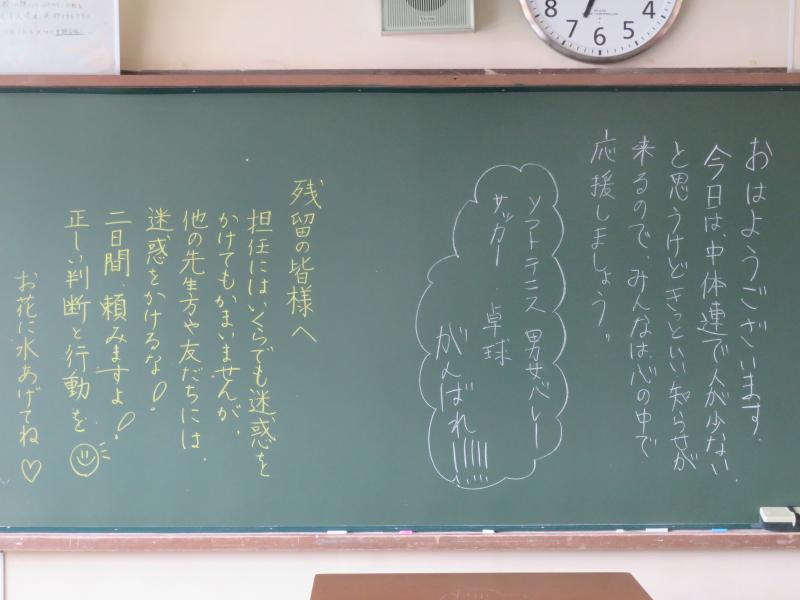 おはようございます.
今日は、中体連で人が少ない
と思うけどきっといい知らせが
来るので、みんなは心の中で
応援しましょう。
ソフトテニス 男女バレー
サッカー. 卓球
がんばれ!!!!!
残留の皆様へ
担任にはいくらでも迷惑を
かけてもかまいませんが、
他の先生方や友だちには、
迷惑をかけるな!
二日間、頼みますよ!
正しい判断と行動を
お花に水あげてね♡
8
7
6
5
4